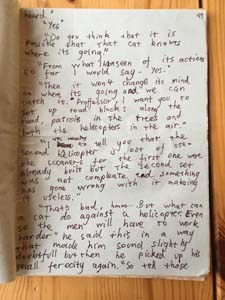 heard."
49
"Yes"
"Do you think that it is
possible that that cat knows
where its going."
"From what I'v seen of its actions
so far I would say - Yes.
"Then it won't change its mind
on where its going and we can
catch it." Proffessor, I want you to
set up road blocks along the
road, patrols in the trees and
both the helicopters in the air."
to tell you that the
second helicopter is out of use
the scanners for the first one were
already built but the second set
was not compleate and something
gone wrong with it making
it useless."
"That's bad, hmm. But what can
a cat do against a helicopter. Even
so the men will have to work
harder" he said this in a way
that made him sound slightly
doubtfull but then he picked up his
usuall ferocity again. "So tell those